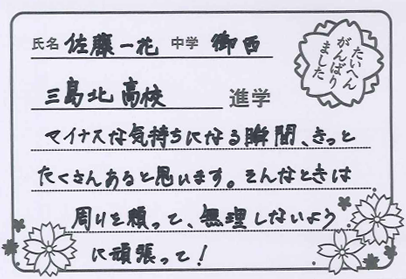 氏名 佐藤一花 中学 御西
たいへん
がんばり
ました
三島北高校 進学
マイナスな気持ちになる瞬間、きっと
たくさんあると思います。そんなときは
周りを頼って、無理しないよう
に頑張って！